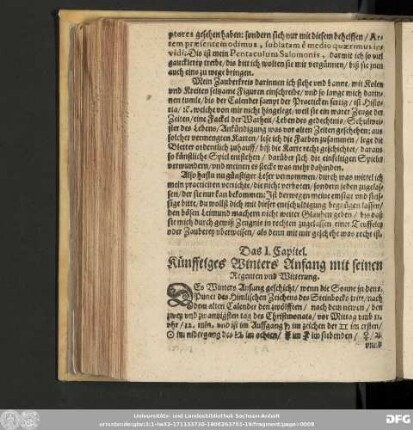 ptores gesehen haben: sondern sich nur mit diesem behelffen / Ar-
tem præsentem odimus, sublatam è medio quærimus in-
vidi. Diß ist mein Pentaculum Salomonis, darmit ich so viel
gaucklerey treibe, die bitt ich wolten sie mir vergünnen / biß sie jnen
auch eins zu wege bringen.
Mein Zauberkreis darinnen ich stehe vnd banne, mit Kolen
vnd Kreiten seltzame Figuren einschreibe / vnd so lange mich darin-
nen tumle, bis der Calender sampt der Practicken fertig / ist Histo-
ria / ꝛc. welche von mir nicht hingelegt, weil sie ein warer Zeuge der
Zeiten / eine Fackel der Warheit / Leben des gedechtnis / Schulmei-
ster des Lebens / Ankündigung was vor alten Zeiten geschehen: aus
solcher vermengten Karten / lese ich die Farben zusammen / lege die
Bletter ordentlich zuhauff / biß die Karte recht geschichtet / daraus
so künstliche Spiel entstehen / darüber sich die einfeltigen Spieler
verwundern / vnd meinen es stecke was mehr dahinden.
Also hastu nu günstiger Leser vernommen / durch was mittel ich
mein practiciren verrichte / die nicht verboten / sondern jeden zugelas-
sen / der sie nur kan bekommen: Ist derwegen meine emsige vnd fleis-
sige bitte, du wollst dich mit dieser entschüldigung begnügen lassen /
den bösen Leimund machern nicht weiter Glauben geben / bis daß
sie mich durch gewiß Zeugnis in rechten zugelassen einer Teuffeley
oder Zauberey vberweisen / als denn mit mir geschehe was recht ist.
Das I. Capitel.
Künfftiges Winters Anfang mit seinen
Regenten vnd Witterung.
DEs Winters Anfang geschicht / wenn die Sonne in den 1.
Punct des Himlischen Zeichens des Steinbocks tritt / nach
dem alten Calender den zwölfften / nach dem newen / den
zwey vnd zwantzigsten tag des Christmonats / vor Mittag vmb 11.
vhr / 22. min. vnd ist im Auffgang ♄ im zeichen der ♊ im ersten /
☉ im nidergang des ♑ im achten / im ♐ im siebenden /
Universitäts- und Landesbibliothek Sachsen-Anhalt